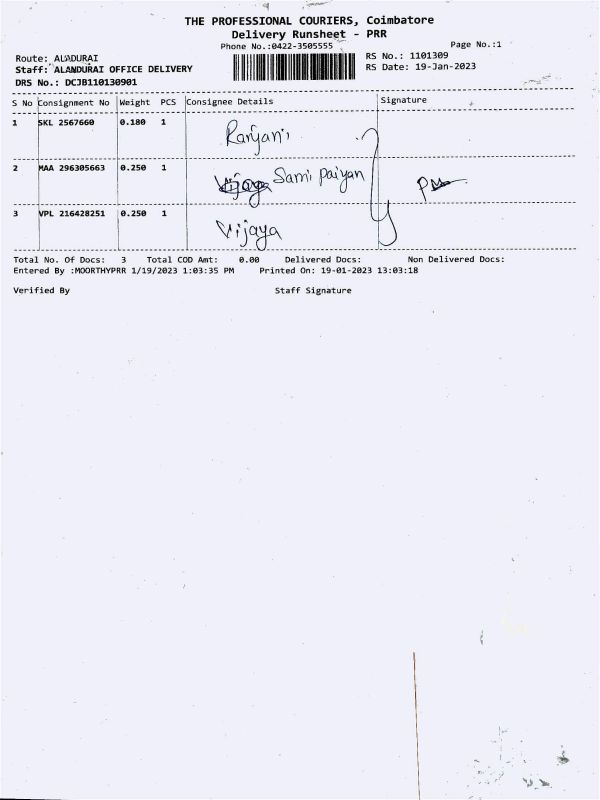 THE PROFESSIONAL COURIERS, Coimbatore
Delivery Runsheet - PRR
Phone No.:0422-3505555 Page No.:1
Route: ALADURAI RS No.: 1101309
Staff: ALANDURAI OFFICE DELIVERY RS Date: 19-Jan-2023
DRS No.: DCJB1101309O1
S No Consignment No Weight PCS Consignee Details Signature
1 SKL 2567660 0.180 1 Ranjani
2 MAA 296305663 0.250 1 Vijaya Sami paiyan
3 VPL 216428251 0.250 1 Vijaya
Total No. Of Docs: 3 Total COD Amt: 0.00 Delivered Docs: Non Delivered Docs:
Entered By :MOORTHYPRR 1/19/2023 1:03:35 PM Printed On: 19-01-2023 13:03:18
Verified By Staff Signature